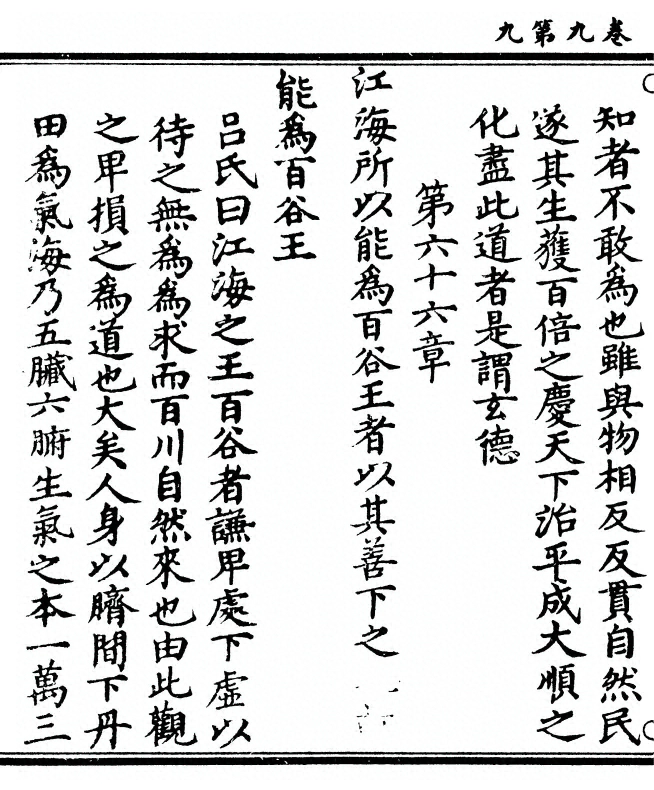 卷九第九
知者不敢為也雖與物相反反貫自然民
遂其生獲百倍之慶天下治平成大順之
化盡此道者是謂玄德
第六十六章
江海所以能為百谷王者以其善下之
能為百谷王
呂氏曰江海之王百谷者謙卑處下虛以
待之無為為求而百川自然來也由此觀
之卑損之為道也大矣人身以臍間下丹
田為氣海乃五臟六腑生氣之本一萬三